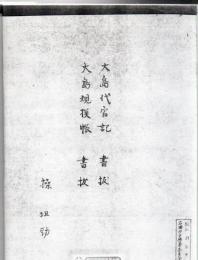 大島代官記 書抜
大島規模帳 書抜
操坦勁